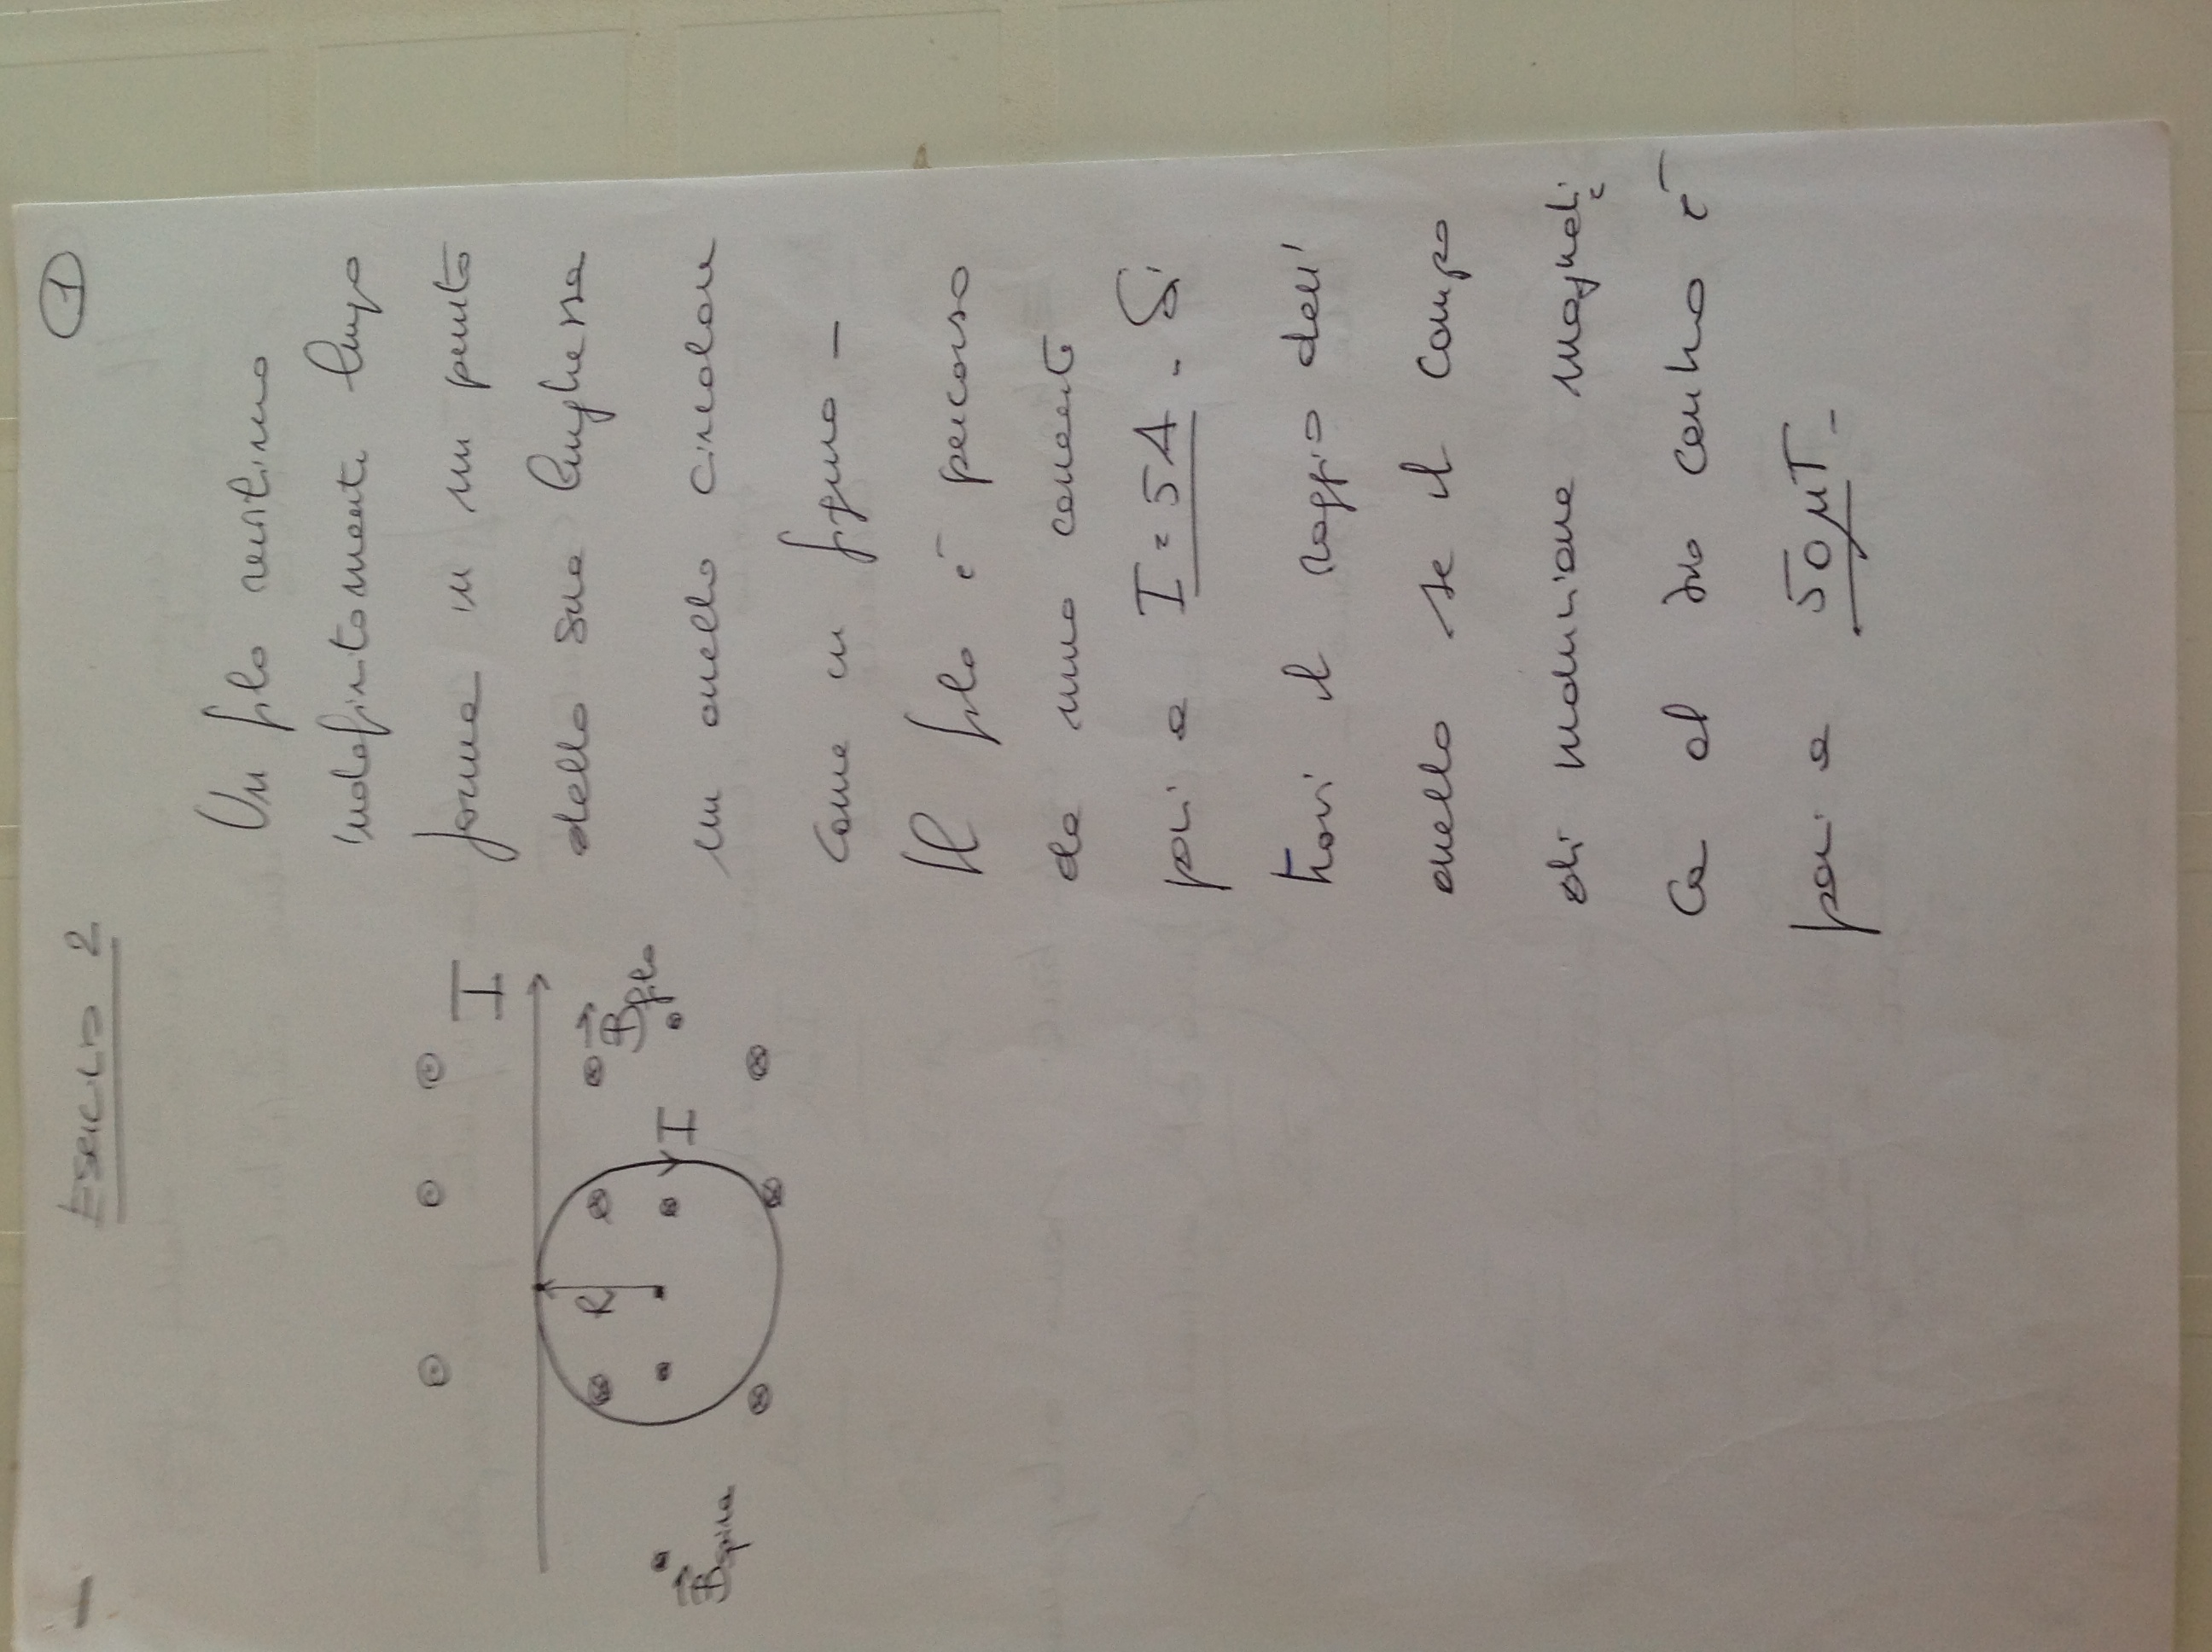 Esercizio 2
1
Un filo rettilineo
indefinitamente lungo
forma in un punto
della sua lunghezza
un anello circolare
come in figura -
Il filo è percorso
da una corrente
pari a I = 5A - Si
trovi il raggio dell'
anello se il campo
di induzione magneti
ca al suo centro è
pari a 50 μT -
I
R
B filo
I
B spira